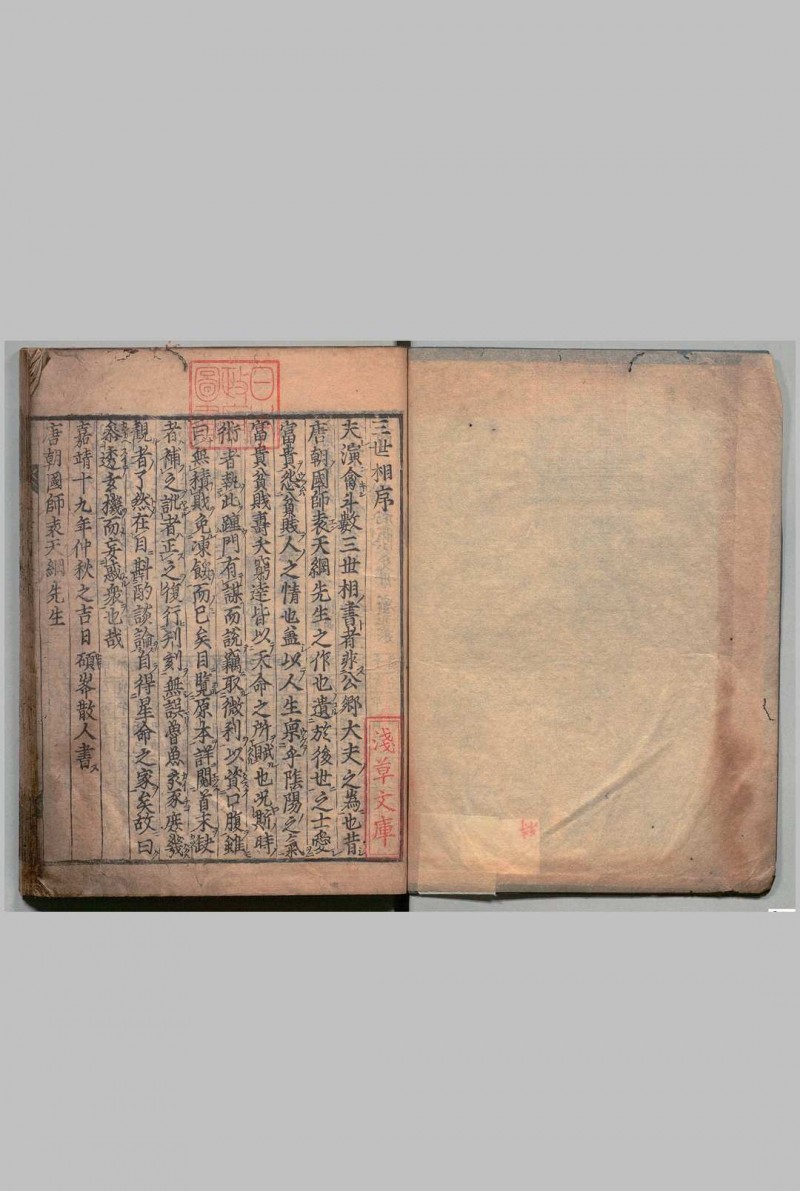 三世相序
夫演禽斗數三世相書者非公卿大夫之為也昔
唐朝國師袁天綱先生之作也遺於後世之士愛
富貴怨貧賤人之情也蓋以人生稟乎陰陽之氣
富貴貧賤壽夭窮達皆以天命之所賦也況時
術者執此踵門有謀而說竊取微利以資口腹雖
曰無積賕免凍餒而已矣目覽原本詳閱首末缺
者補之訛者正之復行刋刻無誤魯魚亥豕庶幾
觀者了然在目斟酌談論自得星命之家矣故曰
叅透玄機而妄惑衆也哉
嘉靖十九年仲秋之吉日碩峯散人書
唐朝國師袁天綱先生
淺草文庫